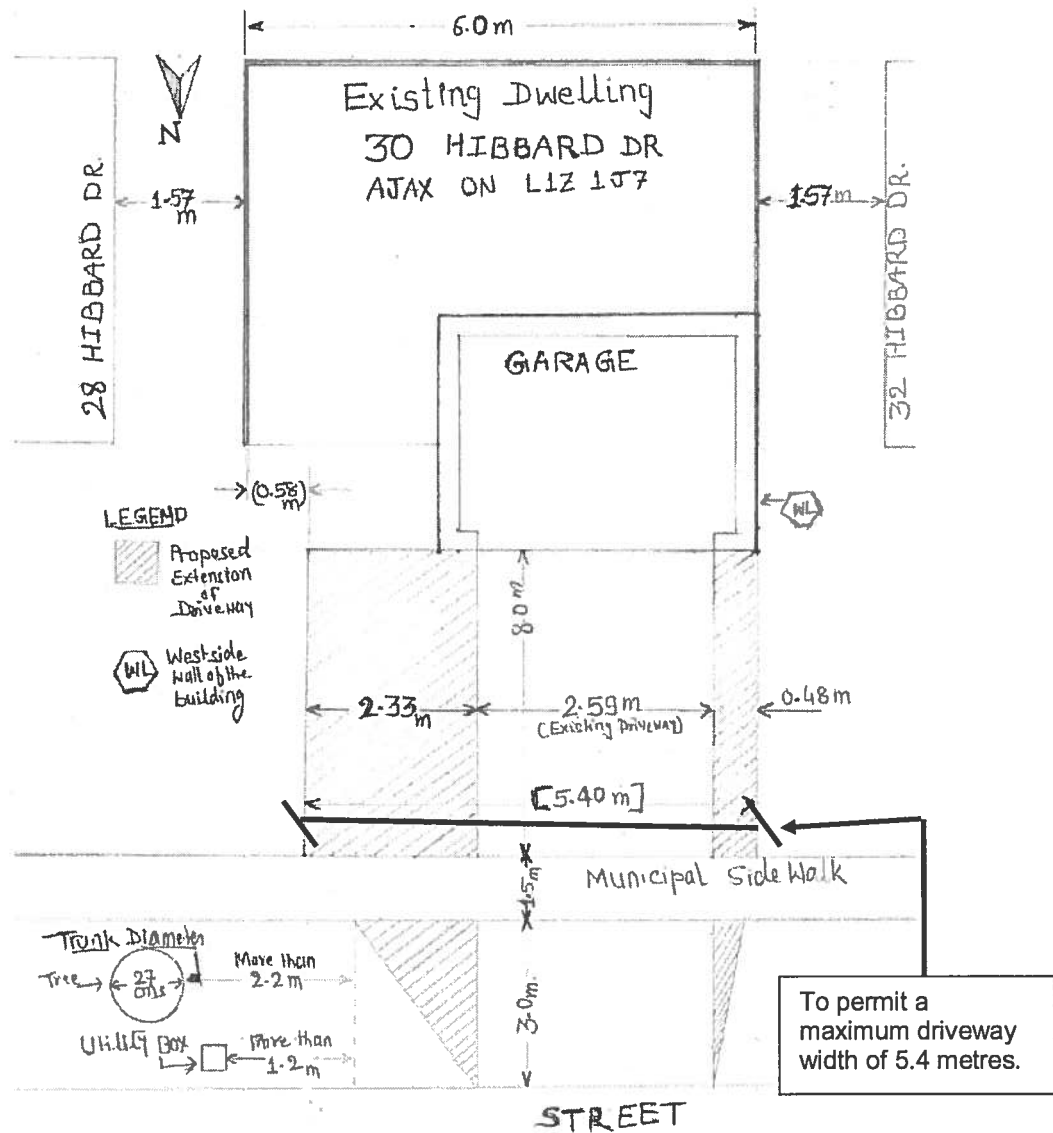 6.0m
Existing Dwelling
30 HIBBARD DR
AJAX ON L1Z 1J7
N
28 HIBBARD DR.
1.57
m
1.57m
32 HIBBARD DR.
GARAGE
(0.58)
m
WL
LEGEND
Proposed
Extension
of
Driveway
WL
Westside
wall of the
building
8.0m
2.33m
2.59m
(Existing Driveway)
0.48m
[5.40m]
1.5m
Municipal Side Walk
Trunk Diameter
Tree
27
cms
More than
2.2m
Utility Box
More than
1.2m
3.0m.
To permit a
maximum driveway
width of 5.4 metres.
STREET